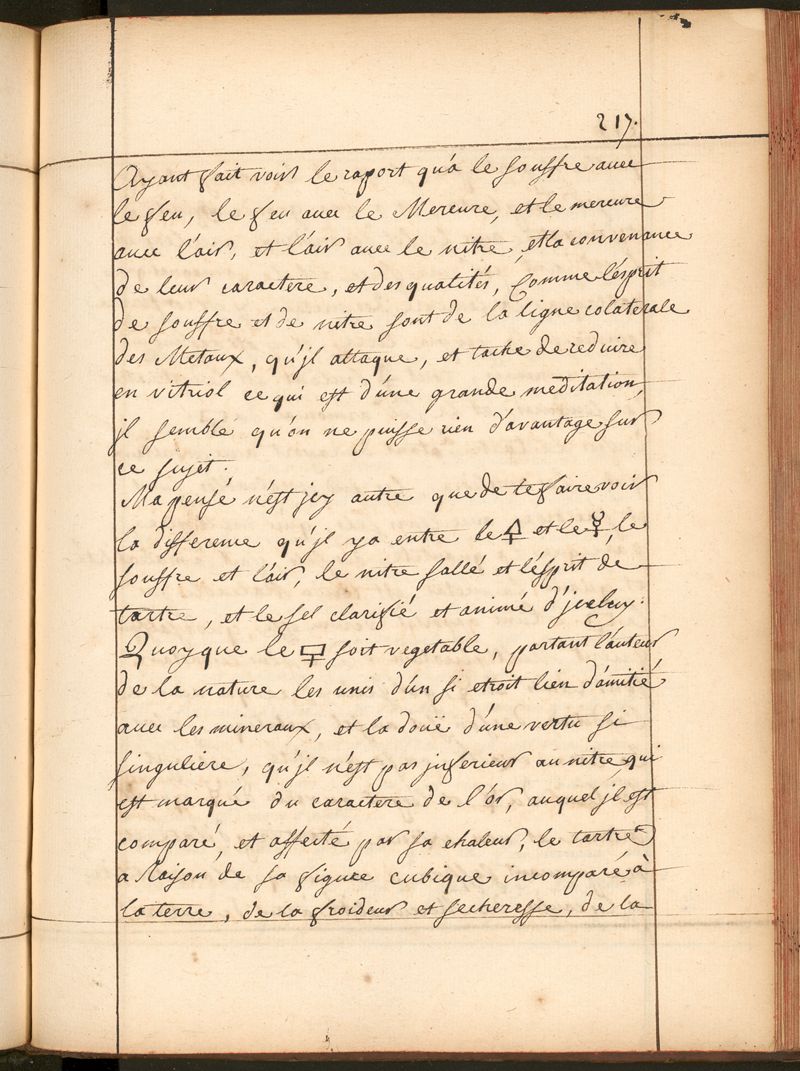 217.
Ayant fait voir le raport qu'a le souffre avec
le feu, le feu avec le Mercure, et le mercure
avec l'air, et l'air avec le nitre, et la convenance
de leur caractere, et des qualités, Comme l'ésprit
de souffre et de nitre sont de la ligne colaterale
des Metaux, qu'jl attaque, et tache de reduire
en vitriol ce qui est d'úne grande meditation,
jl semble qu'on ne puisse rien d'avantage sur
ce sujet.
Ma pensé n'est jcy autre que de te faire voir
la difference qu'jl y a entre le 🜍 et le ☿, le
souffre et l'air, le nitre sallé et l'ésprit de
tartre, et le sel clarifié et animé d'jceluy.
Quoyque le 🜿 soit vegetable, partant l'auteur
de la nature les unis d'un si etroit lien d'amitié
avec les mineraux, et la doüé d'úne vertu si
singulière, qu'jl n'est pas jnferieur au nitre qui
est marqué du caractere de l'or, auquel jl est
comparé, et affecté par sa chaleur, le tartre
a Raison de sa figure cubique incomparé à
la terre, de la froideur et secheresse, de la